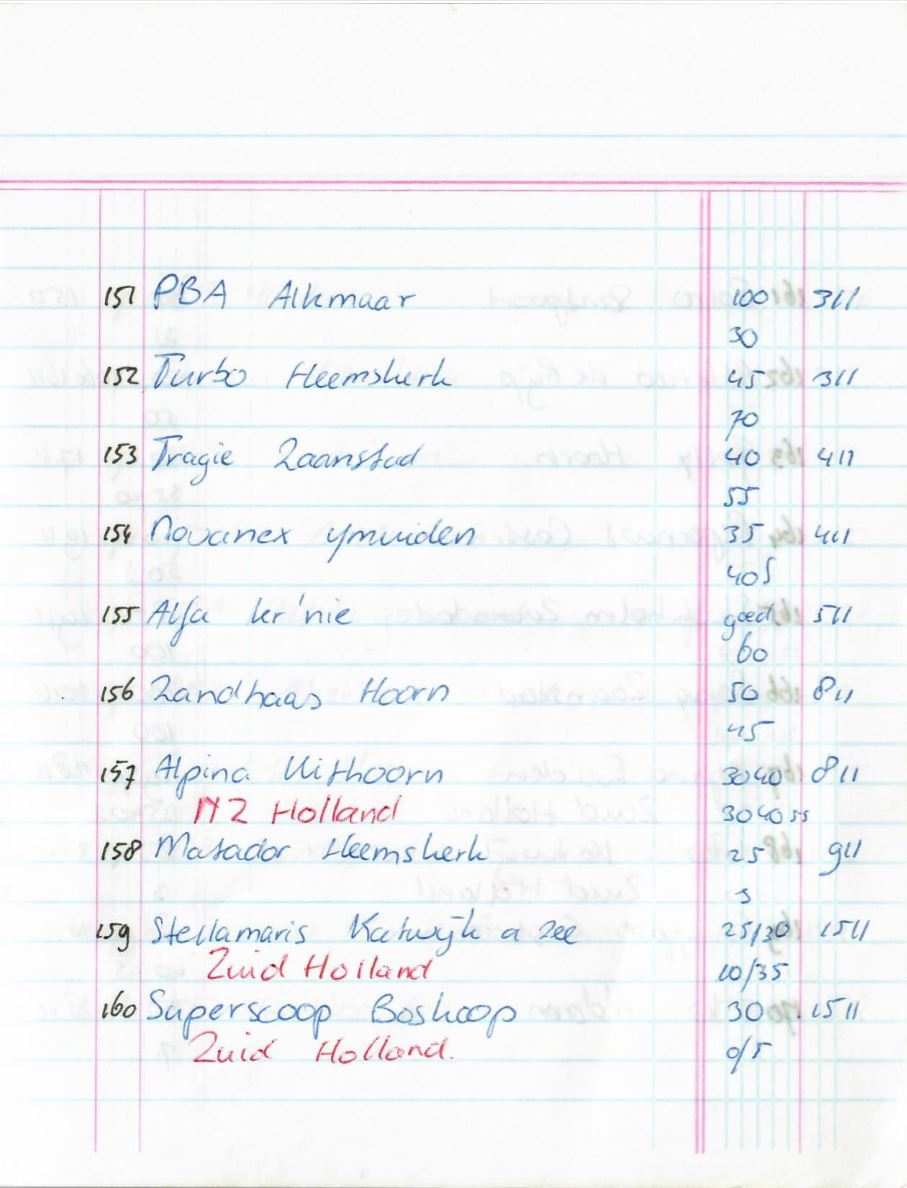 151 PBA Alkmaar 100 311
30
152 Turbo Heemskerk 45 311
70
153 Tragie Zaanstad 40 411
55
154 Novanex ymuiden 35 411
405
155 Alfa kr'nie goed 511
60
156 Zandhaas Hoorn 50 811
45
157 Alpina Uithoorn 3040 811
NZ Holland 304055
158 Matador Heemskerk 25 911
5
159 Stellamaris Katwijk a zee 25/30 1511
Zuid Holland 10/35
160 Superscoop Boskoop 30 1511
Zuid Holland. 0/5